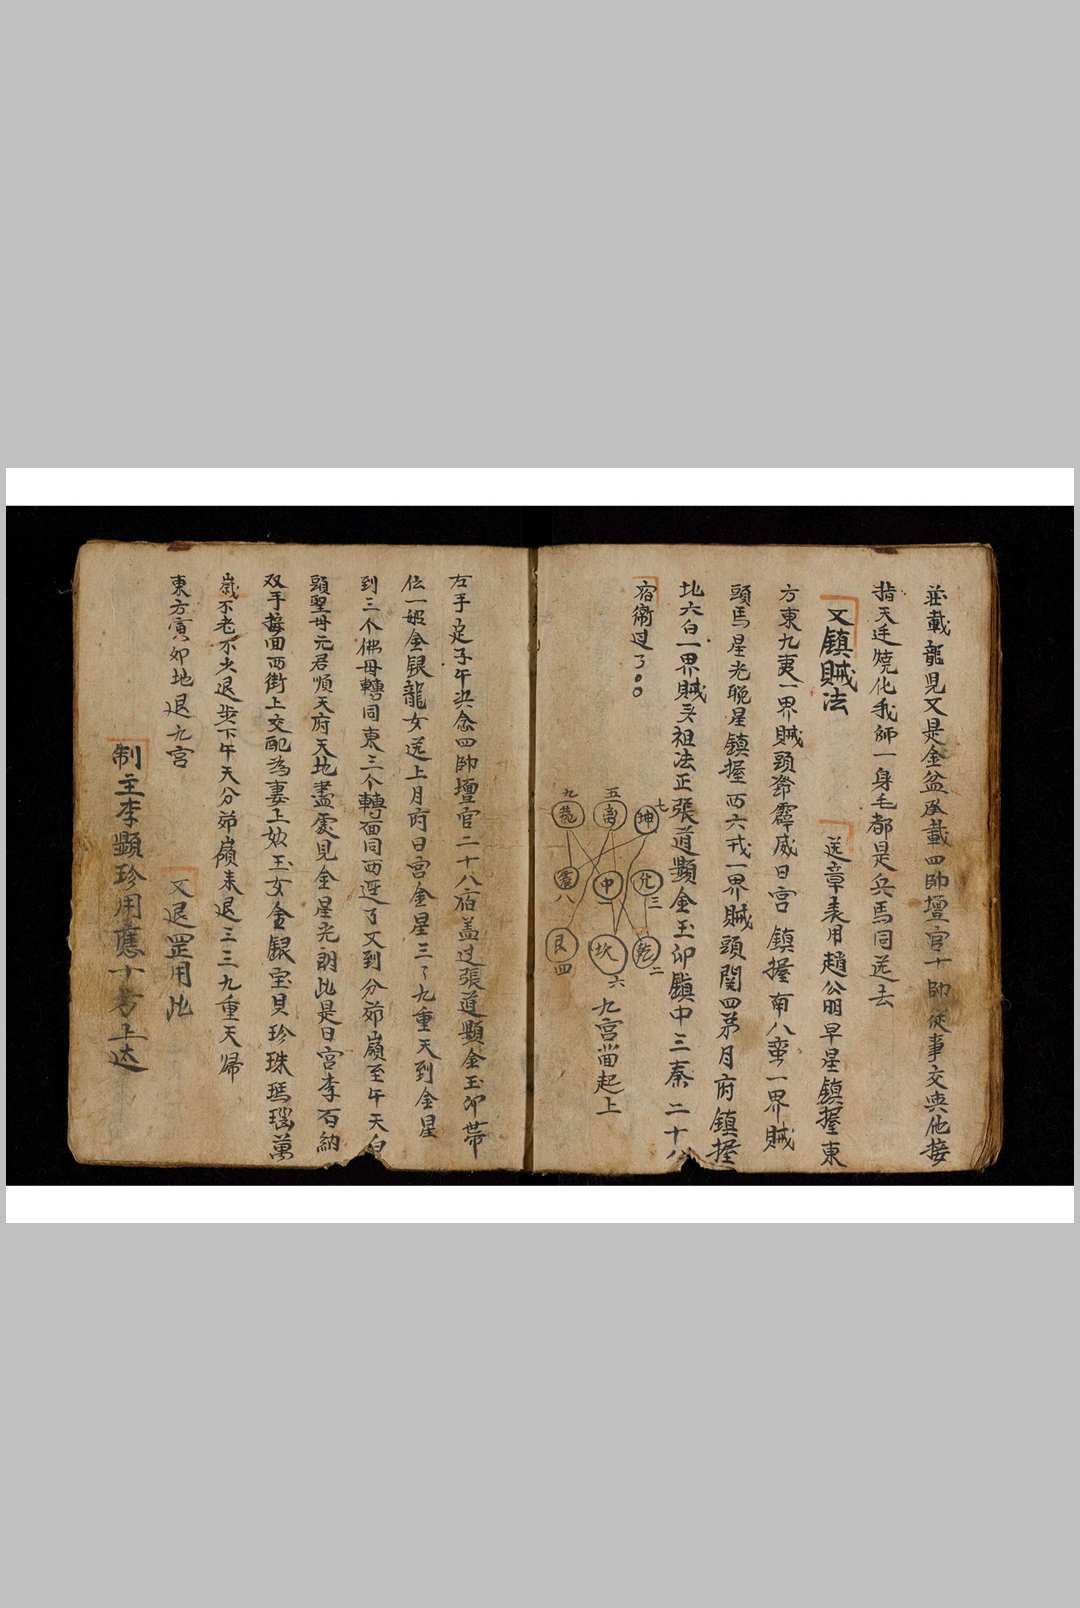 載龍児又是金盆承載四帥壇官十帥従事交與他接
指天迋燒化我師一身毛都是兵馬同送去
又鎮賊法
送章表用趙公明早星鎮握東
方東九夷一界賊頭鄧霹威日宮鎮握南八蛮一界賊
頭馬星光晚星鎮握西六戎一界賊頭関四弟月府鎮握
北六白一界賊头祖法正張道顕金玉卬鎮中三秦二十八
宿衛过了。。
九 五 七
離 坤
震 中 兌
八 三
艮 坎 乾
四 六 二
九宮當起上
左手定子午决念四帥壇官二十八宿盖过張道顕金玉卬帶
伝一姐金銀龍女送上月府日宮金星三了九重天到金星
到三个佛母轉同東三个轉面同西迋了又到分茆嶺至午天白
頭聖母元君順天府天地盡處見金星光朗此是日宮李石納
双手接面西街上交配為妻上姑玉女金銀宝貝珍珠瑪瑙萬
歲不老不大退步下午天分茆嶺来退三三九重天歸
東方寅卯地退九宮
又退罡用比
制主李顕珍用應十方上达